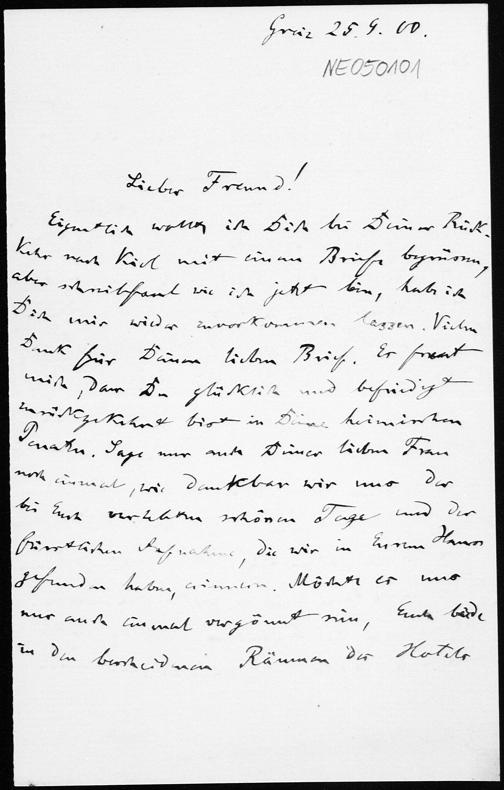 Graz 25.9.00.
NE050101
Lieber Freund!
Eigentlich wollte ich Dich bei Deiner Rück-
kehr nach Kiel mit einem Briefe begrüssen,
aber schreibfaul wie ich jetzt bin, habe ich
Dich mir wieder zuvorkommen lassen. Vielen
Dank für Deinen lieben Brief. Es freut
mich, dass Du glücklich und befriedigt
zurückgekehrt bist in Deine heimischen
Penaten. Sage nur auch Deiner lieben Frau
noch einmal, wie dankbar wir uns der
bei Euch verlebten schönen Tage und der
fürstlichen Aufnahme, die wir in Eurem Hause
gefunden haben, erinnern. Möchte es uns
nur auch einmal vergönnt sein, Euch beide
in den bescheidnen Räumen des Hotels